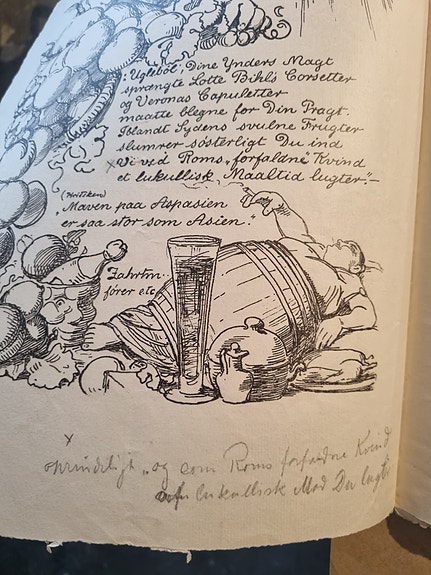 "Uglebol", Dine Ynders Magt
sprængte Lotte Bihl's Corsetter
og Veronas Capuletter
maatte blegne for Din Pragt.
Iblandt Sydens svulne Frugter
slumrer søsterligt Du ind
x vi ved Roms „forfaldne" Kvind
et lukullisk Maaltid lugter."—
(Kritiken)
„Maven paa Aspasien
er saa stor som Asien."
Zahrtm.
fører etc
x
oprindeligt „og som Roms forfaldne Kvind
lukullisk Mad Du lugter